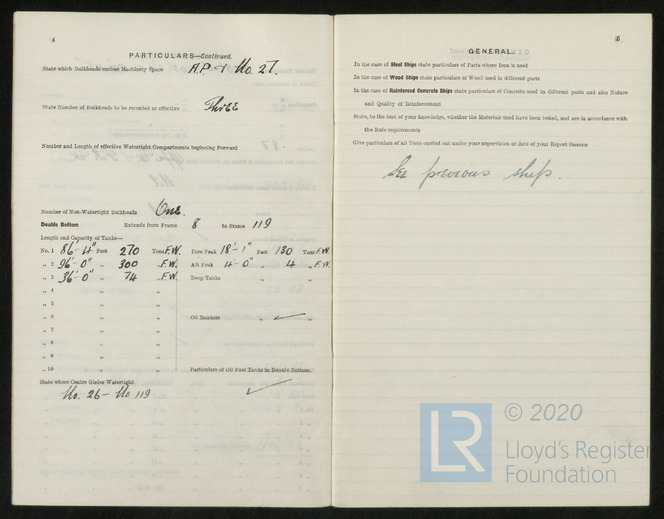 4
PARTICULARS—Continued.
State which Bulkheads enclose Machinery Space A.P. & No. 27.
State Number of Bulkheads to be recorded as effective Three
Number and Length of effective Watertight Compartments beginning Forward
Number of Non-Watertight Bulkheads One.
Double Bottom Extends from Frame 8 to Frame 119
Length and Capacity of Tanks—
No. 1 86'-4" Feet 270 Tons F.W. Fore Peak 18'-1" Feet 130 Tons F.W.
„ 2 96'-0" „ 300 „ F.W. Aft Peak 4'-0" „ 4 „ F.W.
„ 3 36'-0" „ 74 „ F.W. Deep Tanks „ „
„ 4 „ „
„ 5 „ „
„ 6 „ „ Oil Bunkers „ ✓ „
„ 7 „ „
„ 8 „ „
„ 9 „ „
„ 10 „ „ Particulars of Oil Fuel Tanks in Double Bottom.
State where Centre Girder Watertight ✓
No. 26 – No. 119
5
GENERAL.
In the case of Steel Ships state particulars of Parts where Iron is used
In the case of Wood Ships state particulars of Wood used in different parts
In the case of Reinforced Concrete Ships state particulars of Concrete used in different parts and also Nature
and Quality of Reinforcement
State, to the best of your knowledge, whether the Materials used have been tested, and are in accordance with
the Rule requirements
Give particulars of all Tests carried out under your supervision or date of your Report thereon
See previous ship.
LR
© 2020
Lloyd's Register
Foundation